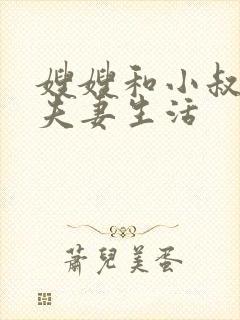 嫂嫂和小叔
夫妻生活
蕭兒美蛋